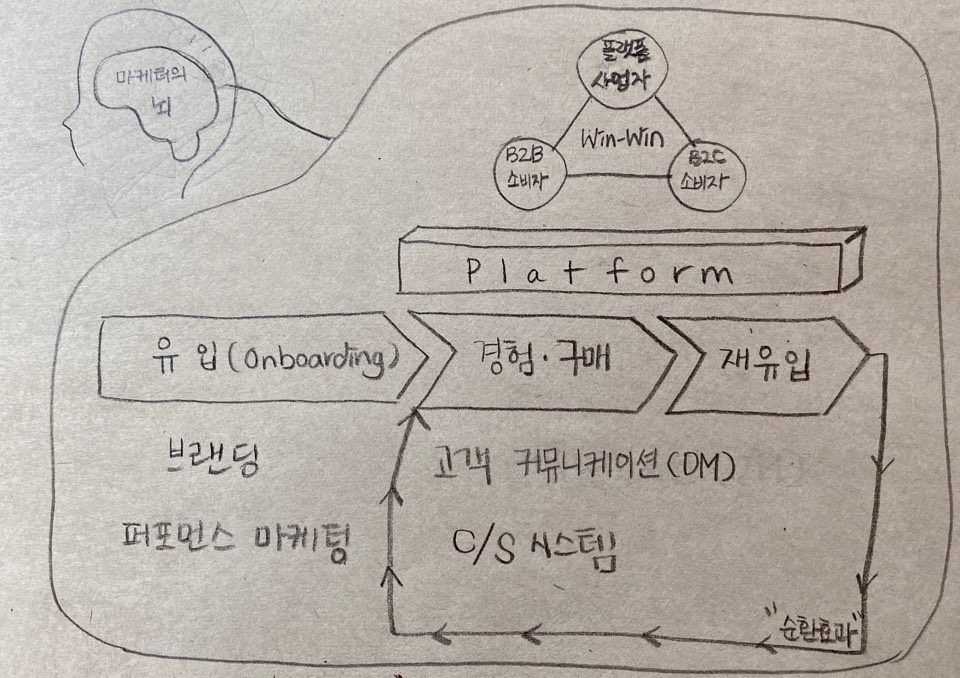 마케터의
뇌
플랫폼
사업자
Win-Win
B2B
소비자
B2C
소비자
Platform
유입(Onboarding)
경험·구매
재유입
브랜딩
고객 커뮤니케이션(DM)
퍼포먼스 마케팅
C/S 시스템
"순환효과"